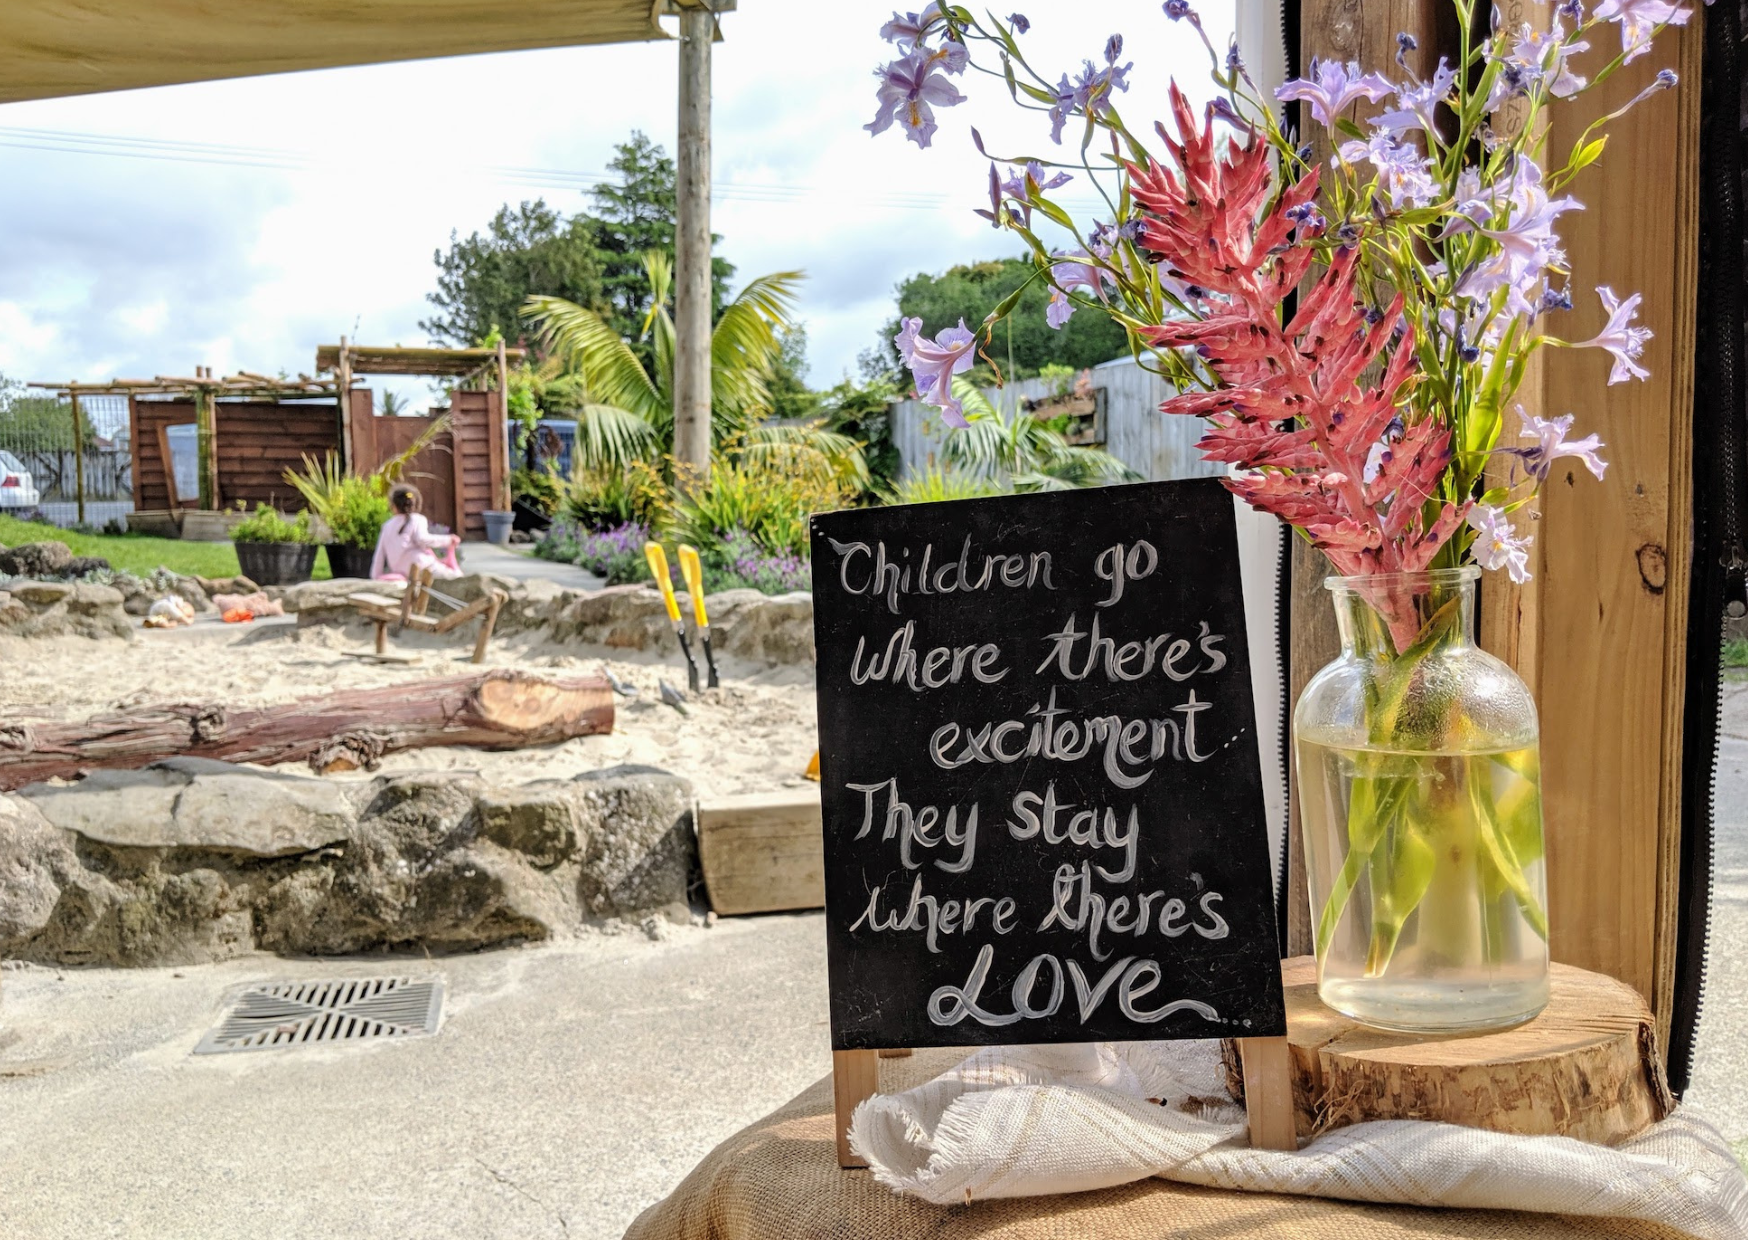 Children go
where there's
excitement...
They stay
where there's
Love...